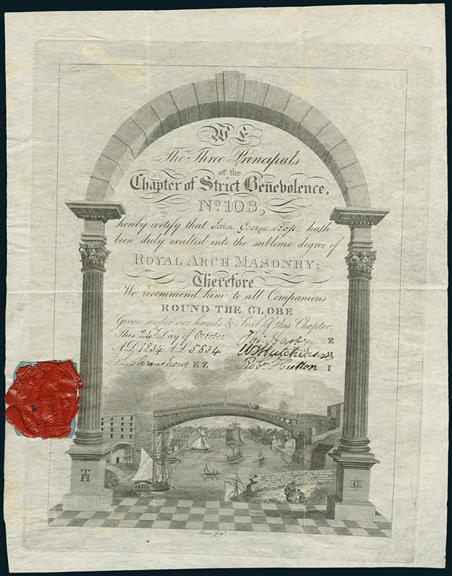 WE
The Three Principals
of the
Chapter of Strict Benevolence,
No. 103,
hereby certify that John George hath
been duly exalted into the sublime degree of
ROYAL ARCH MASONRY;
Therefore
We recommend him to all Companions
ROUND THE GLOBE
Given under our hands & Seal of this Chapter.
This 24th Day of Z
A.D. 1834 A.L. 5834 Wm Hutchinson H
Armstrong E Z Robt Hutton I